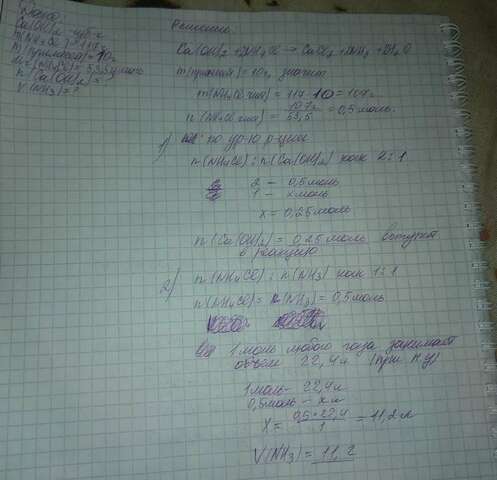 Дано:
Ca(OH)2
m(NH4Cl) = 117г
m(примесей) = 10г
n (Ca(OH)2) = ?
V (NH3) = ?
Решение:
Ca(OH)2 + 2NH4Cl → CaCl2 + 2NH3 + 2H2O
m(примесей) = 10г, значит
m(NH4Cl чист) = 117 - 10 = 107г
n(NH4Cl чист) = 107г / 53,5 = 0,5 моль.
1) по ур-ю р-ции
n(NH4Cl) : n(Ca(OH)2) как 2:1
2 – 0,5 моль
1 – x моль
x = 0,25 моль
n(Ca(OH)2) = 0,25 моль вступает
в реакцию
2) n(NH4Cl) : n(NH3) как 1:1
n(NH4Cl) = n(NH3) = 0,5 моль
1 моль любого газа занимает
объём 22,4 л (при н.у)
1 моль – 22,4 л
0,5 моль – x л
x = 0,5 * 22,4 / 1 = 11,2 л
V(NH3) = 11,2